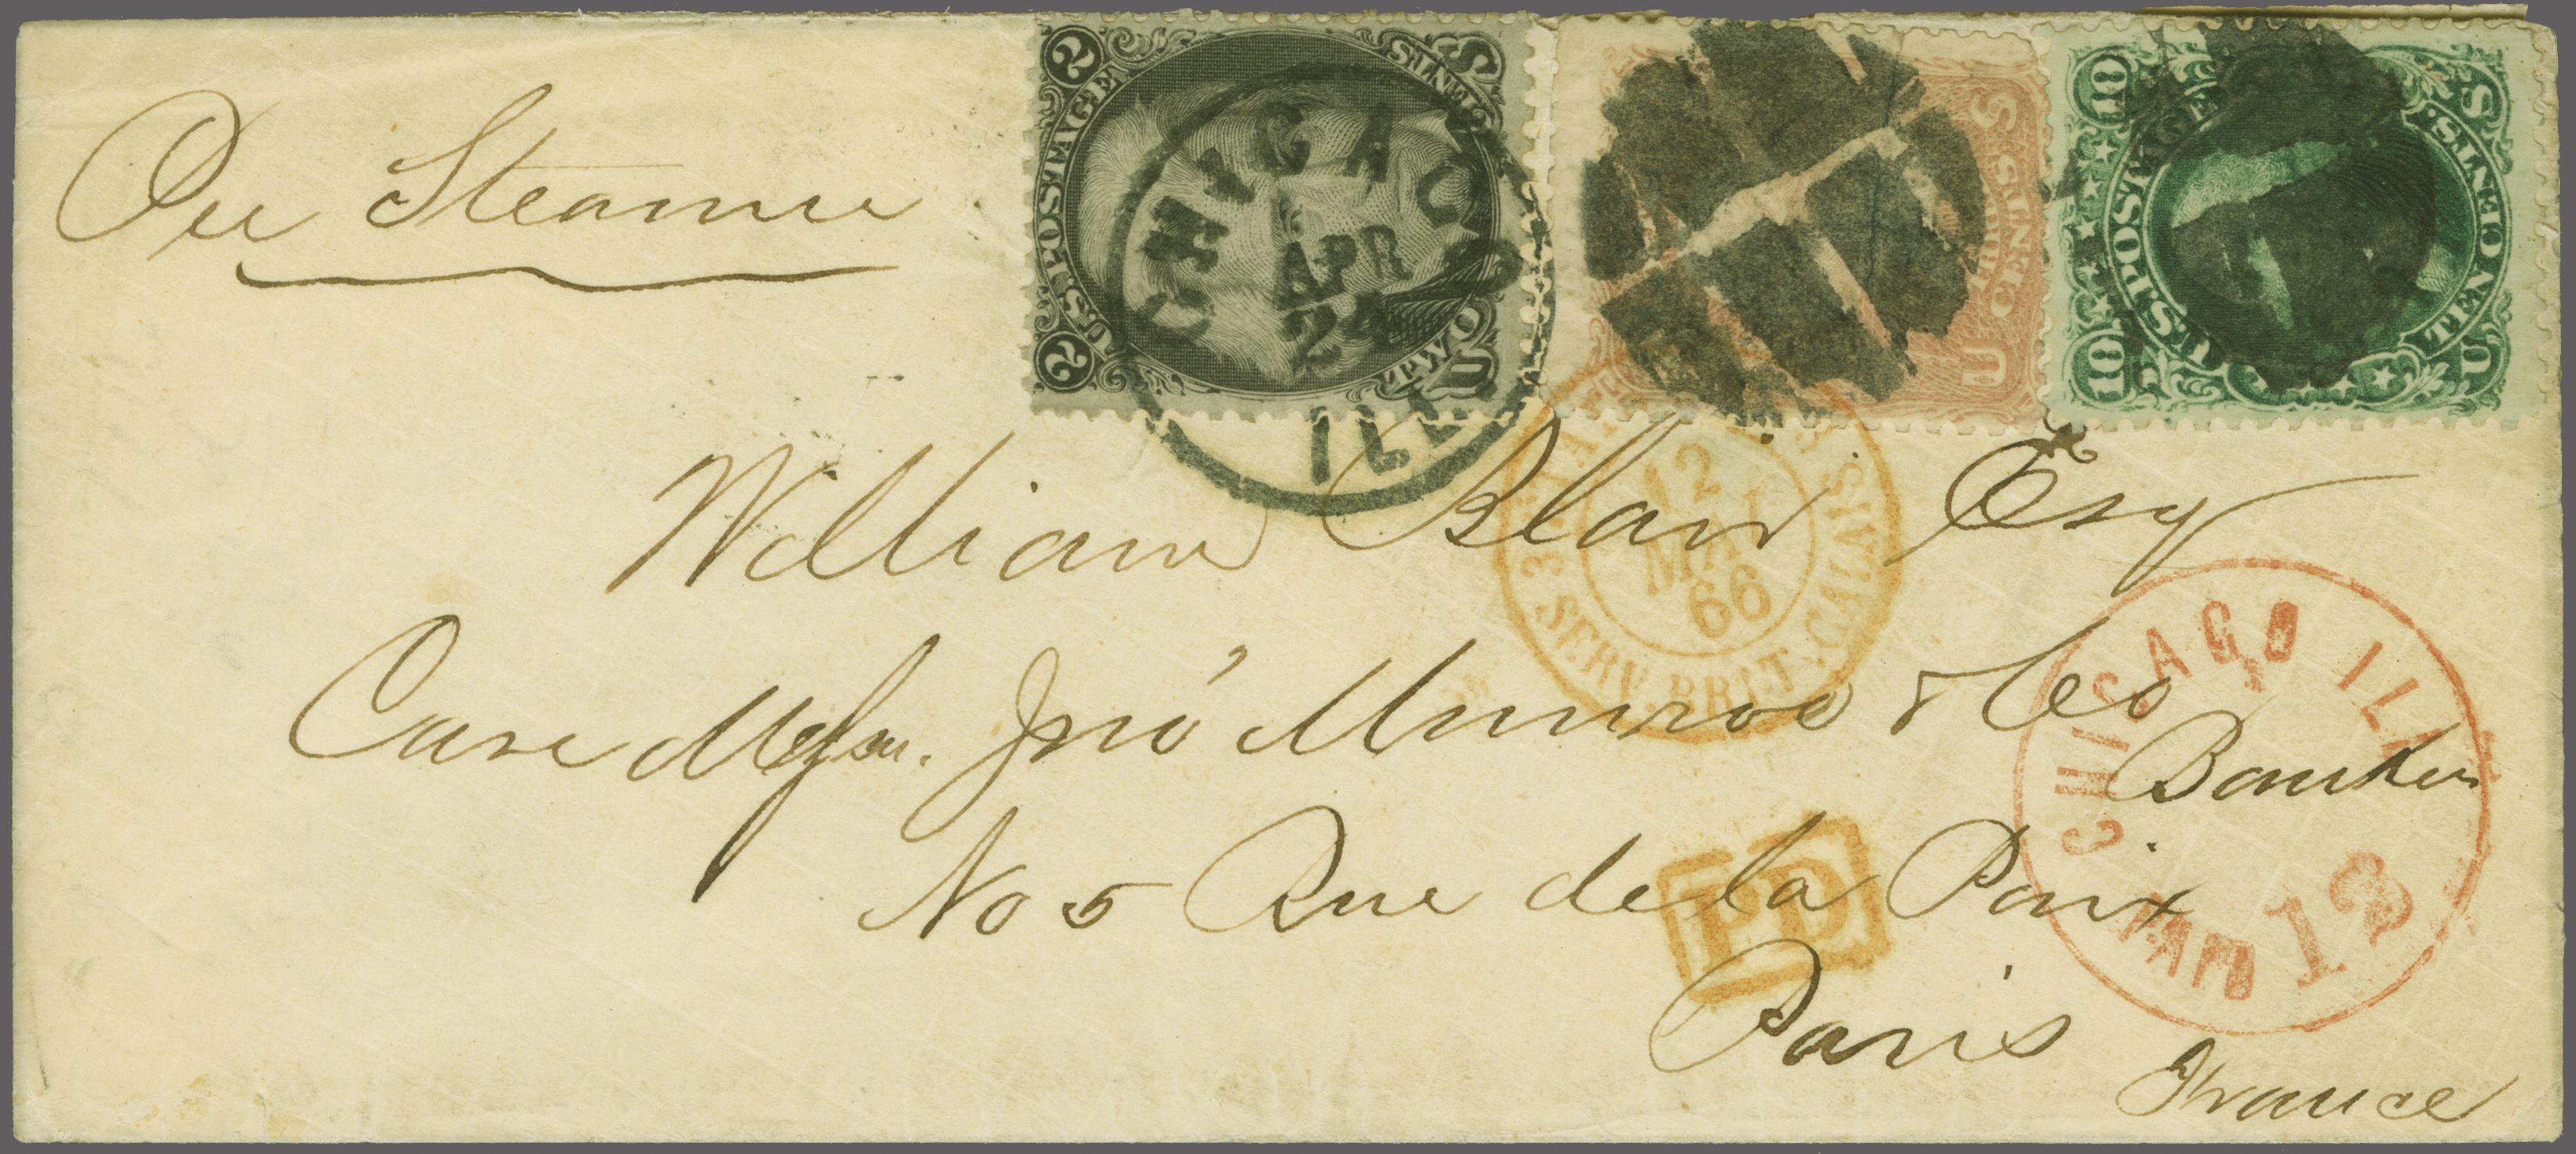 Per Steamer
2 2
U.S. POSTAGE
TWO CENTS
U S
CHICAGO
APR
24
ILL
U S
CENTS
10 10
U.S. POSTAGE
TEN CENTS
U S
William Blair Esq
Care Messr. Jno Munroe & Co
Bankers
No 5 Rue de la Paix
Paris
France
3
12
MAI
66
SERV. BRIT. CALAIS
PD
CHICAGO ILL
PAID 12